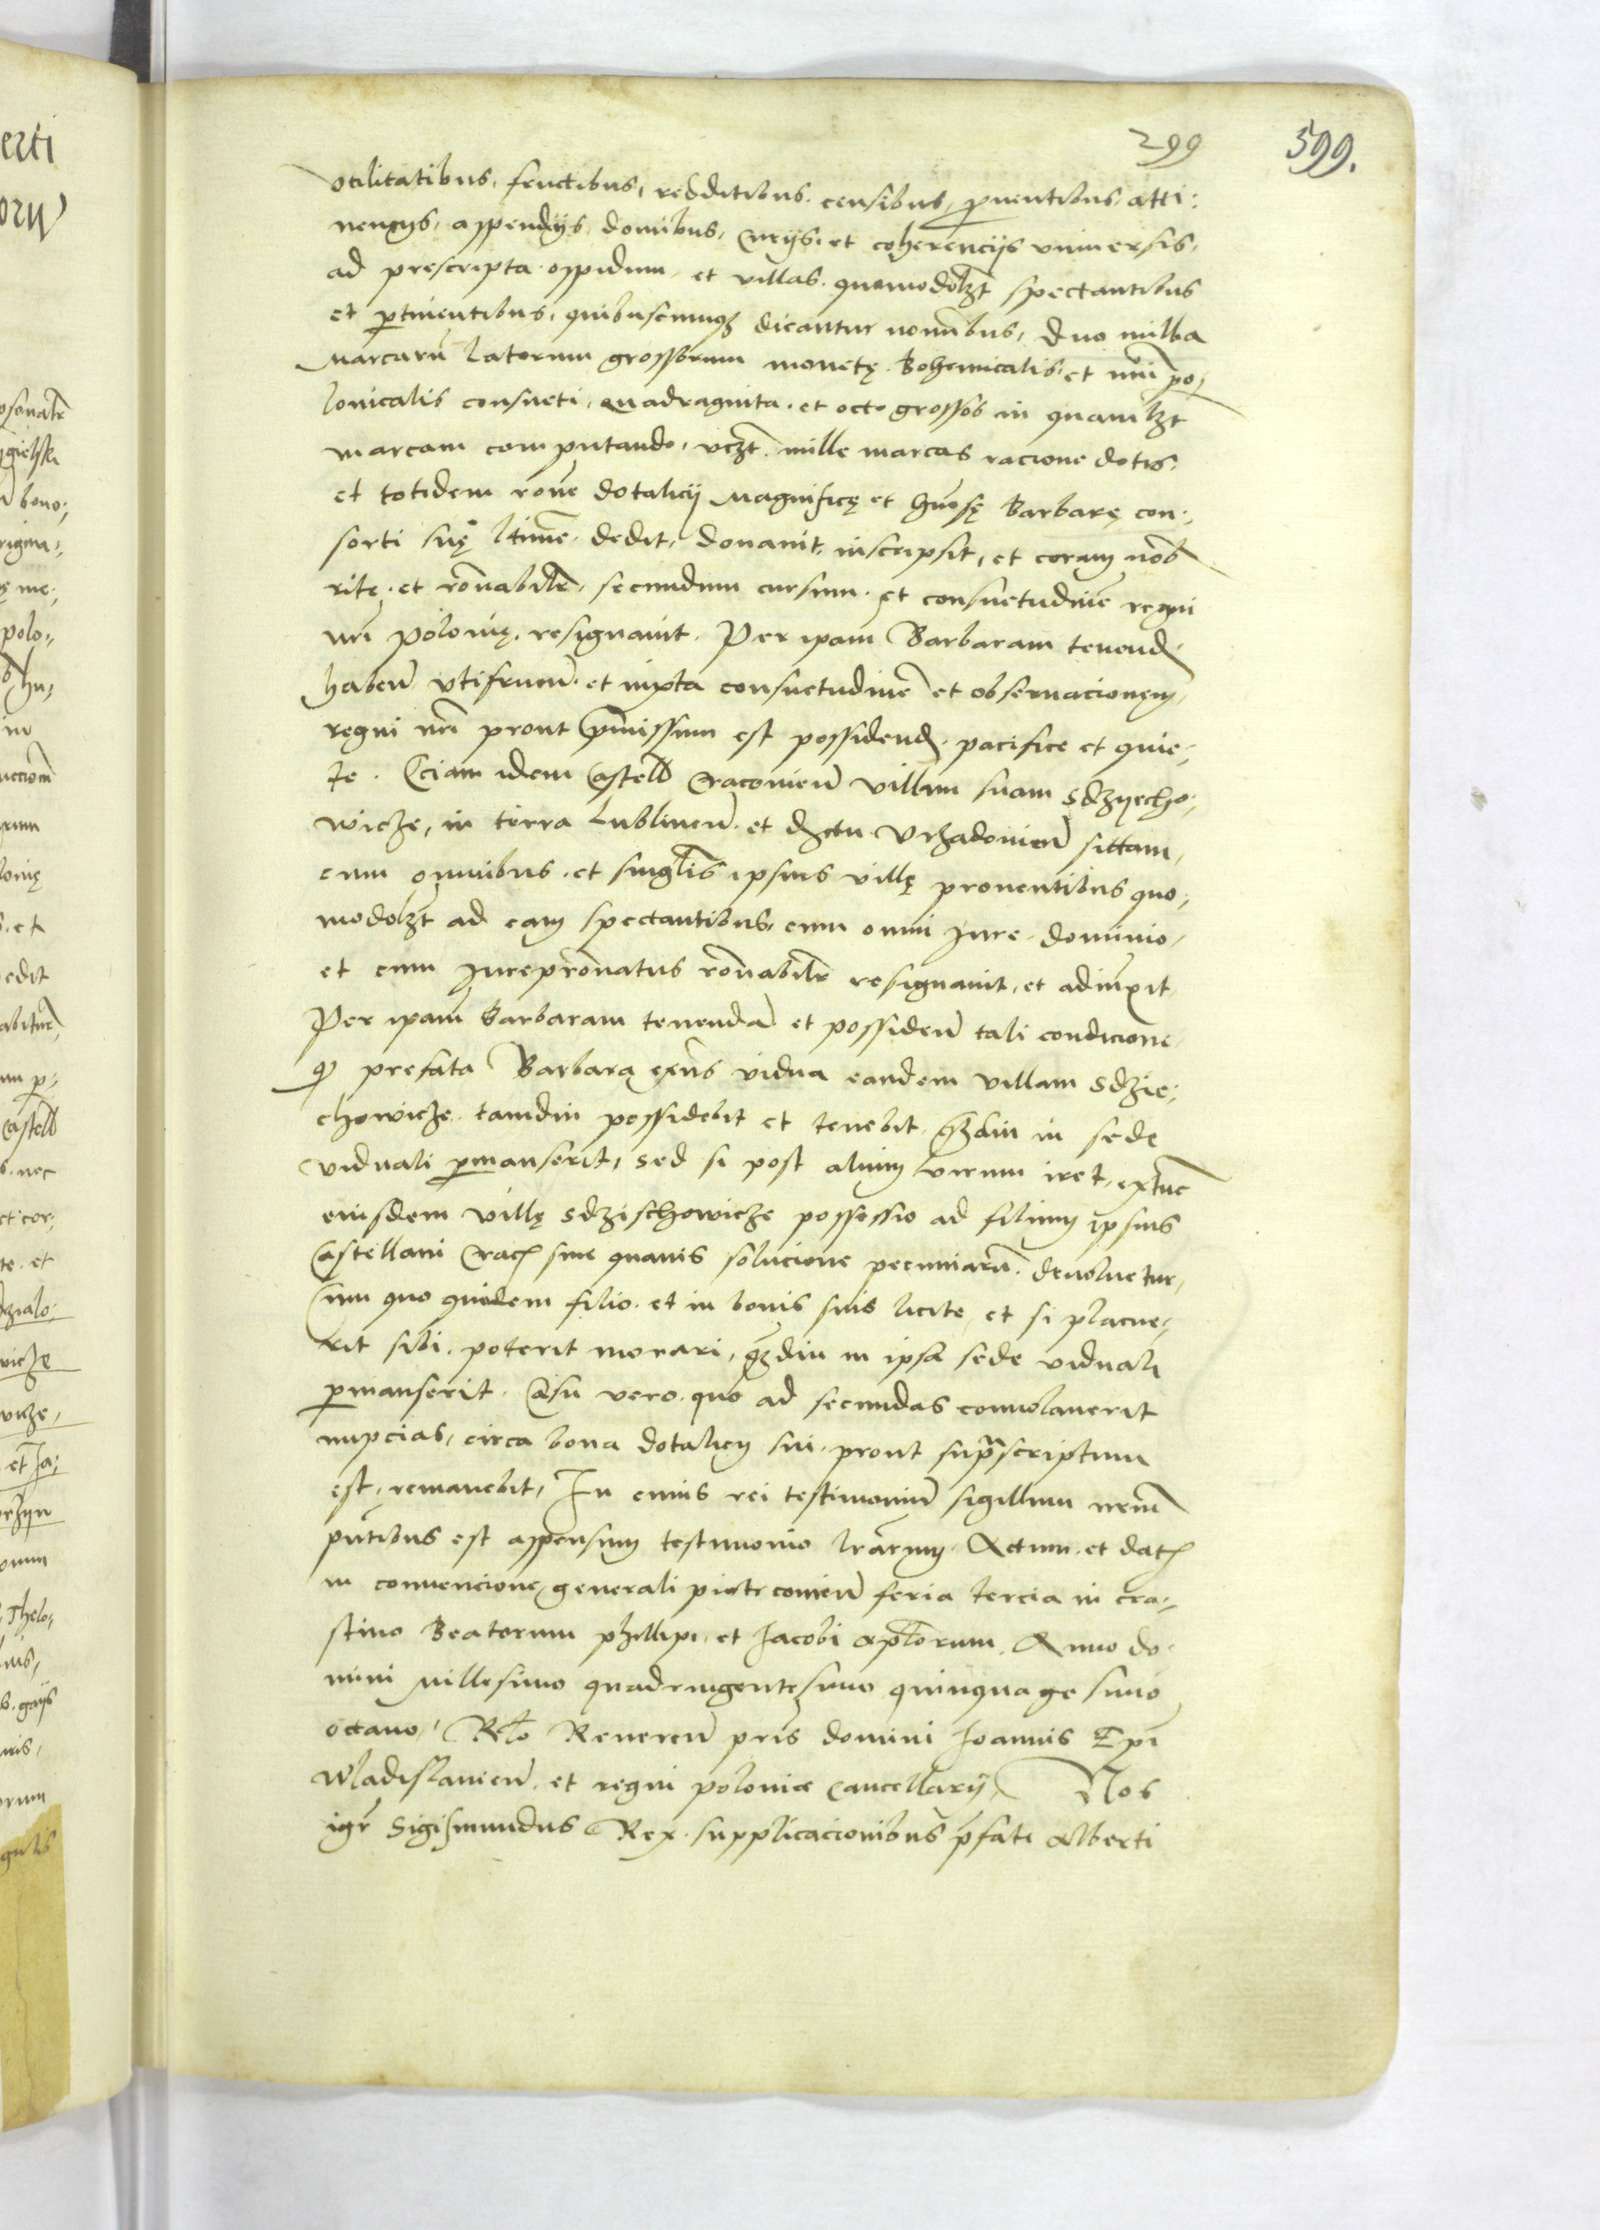 299 599.
vtilitatibus, fructibus, redditibus, censibus, ꝓuentibus, atti:
nencys, appendijs, domibus, curijs, et coherencijs vniuersis,
ad prescripta oppidum, et villas quomodolꝫt spectantibus
et ꝑtinentibus, quibuscunqꝫ dicantur nominibus, duo millia
Marcarũ latorum grossorum monetę Bohemicalis, et nũi po/
lonicalis consueti, quadraginta et octo grossos in quamlꝫt
marcam computando, vczt. mille marcas racione dotis,
et totidem rõne dotalicij Magnificę et Gñosę Barbarę con:
sorti suę ltimẽ dedit, donauit, inscripsit, et coram nob̃
rite et rõnabilr̃, secundum cursum et consuetudinẽ regni
nr̃i Polonię, resignauit. Per ipam̃ Barbaram tenend
habeñ vtifrueñ et iuxta consuetudinẽ et obseruacionem
regni nr̃i prout p̃missum est possidend pacifice et quie:
te. Eciam idem Castell̃ Cracouień villam suam Sdzyecho:
wicze, in terra Lublineñ et dictu Vrzadouień sittam,
cum omnibus et singlis̃ ipsius villę prouentibus quo:
modolꝫt ad eam spectantibus, cum omni Jure, dominio,
et cum Jureprõnatus rõnabilr̃ resignauit, et adiũxit
Per ipam̃ Barbaram tenendã et possideñ tali condicione
ꝙ prefata Barbara exñs vidua eandem villam Sdzie:
chowicze tamdiu possidebit et tenebit qꝫdiu in sede
viduali ꝑmanserit, sed si post alium virum iret, extũc
eiusdem villę Sdzischowicze possessio ad filium ipsius
Castellani Crac̃ sine quauis solucione pecuniarũ deuoluetur,
Cum quo quidem filio et in bonis suis licite, et si placue:
rit sibi poterit morari, qꝫdiu in ipsa sede viduali
ꝑmanserit. Casu vero quo ad secundas conuolauerit
nupcias, circa bona dotalicij sui prout sup̃scriptum
est, remanebit, In cuius rei testimoniũ sigillum nrũm
pñtibus est appensum testimonio lr̃arum. Actum et dat̃
in conuencione generali piotrcouień feria tercia in cra:
stino Beatorum phillipi et Jacobi aplõrum, Anno do:
mini Millesimo quadringentesimo quinquagesimo
octauo, Relõ Reuereñ pris̃ domini Joannis Epi
Wladislauień et regni polonie Cancellarij, Nos
igr̃ Sigismundus Rex supplicacionibus p̃fati Alberti